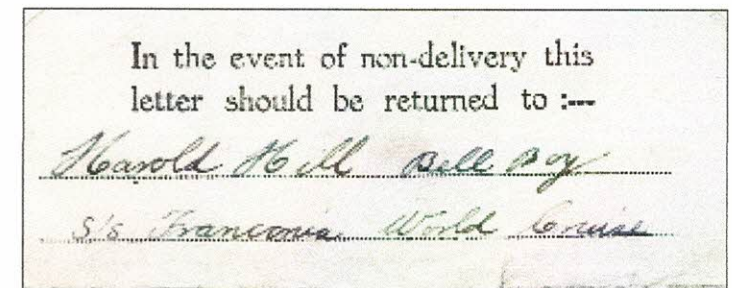 In the event of non-delivery this
letter should be returned to :---
Harold Hill Bell Boy
S/s Franconia World Cruise